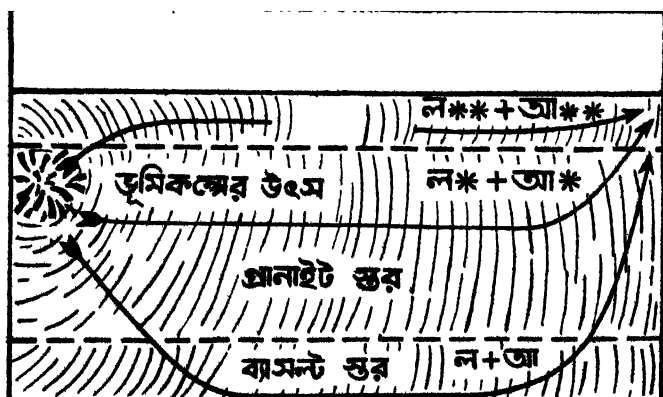 ল** + আ**
ভূমিকম্পের উৎস
ল* + আ*
গ্রানাইট স্তর
ব্যাসল্ট স্তর
ল+আ